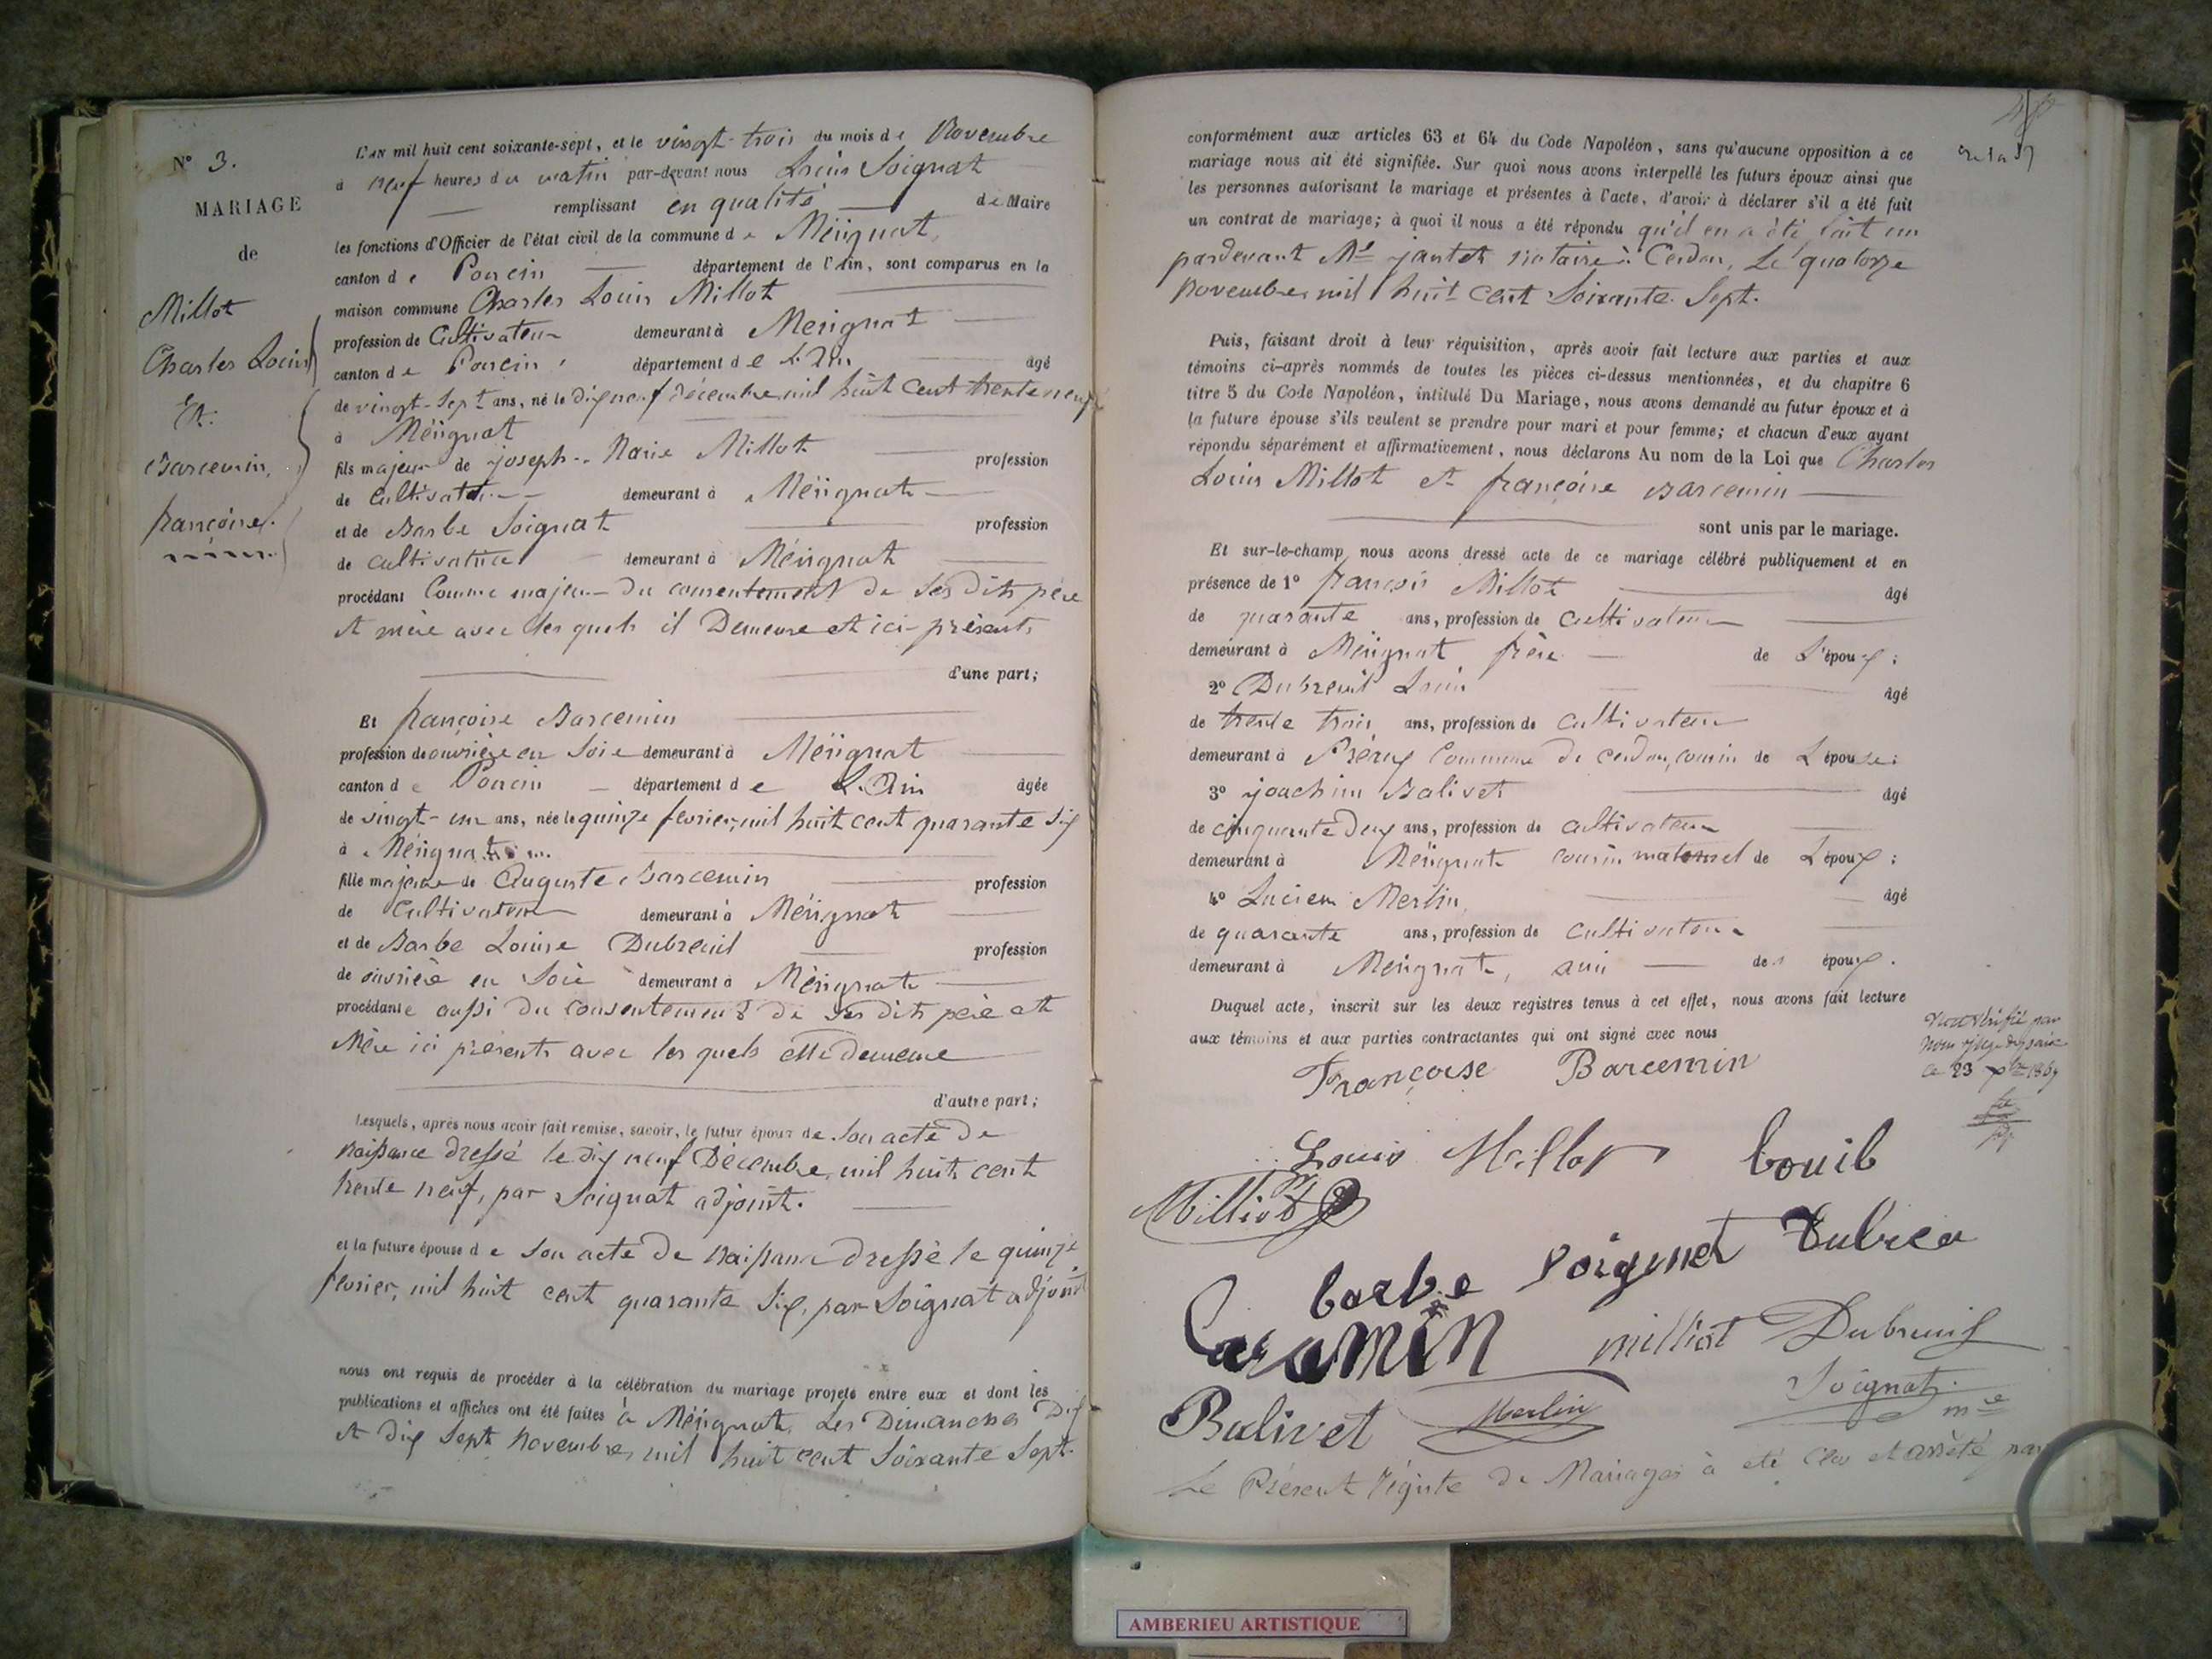 N° 3.
MARIAGE
de
Millot
Charles Louis
Et
Barcemin,
françoise.
L'AN mil huit cent soixante-sept, et le vingt-trois du mois de Novembre
à neuf heures du matin par-devant nous Louis Soignat
remplissant en qualité de Maire
les fonctions d'Officier de l'état civil de la commune de Mérignat,
canton de Poncin département de l'Ain, sont comparus en la
maison commune Charles Louis Millot
profession de Cultivateur demeurant à Mérignat
canton de Poncin département de L'Ain âgé
de vingt-sept ans, né le dix neuf décembre mil huit cent trente neuf
à Mérignat
fils majeur de joseph-Marie Millot profession
de Cultivateur demeurant à Mérignat
et de Barbe Soignat profession
de cultivatrice demeurant à Mérignat
procédant Comme majeur du consentement de ses dits père
et mère avec lesquels il Demeure et ici présents
d'une part;
Et françoise Barcemin
profession de ouvrière en Soie demeurant à Mérignat
canton de Poncin département de L'Ain âgée
de vingt-un ans, née le quinze fevrier, mil huit cent quarante six
à Mérignat
fille majeure de Auguste Barcemin profession
de Cultivateur demeurant à Mérignat
et de Barbe Louise Dubreuil profession
de ouvrière en Soie demeurant à Mérignat
procédante aussi du consentement de ses dits père et
Mère ici présents avec lesquels elle demeure
d'autre part;
Lesquels, après nous avoir fait remise, savoir, le futur époux de son acte de
naissance dressé le dix neuf Décembre, mil huit cent
trente neuf, par Soignat adjoint.
et la future épouse de son acte de naissance dressé le quinze
fevrier, mil huit cent quarante six, par Soignat adjoint
nous ont requis de procéder à la célébration du mariage projeté entre eux et dont les
publications et affiches ont été faites à Mérignat, Les Dimanches Dix
et dix sept novembre, mil huit cent soixante sept.
conformément aux articles 63 et 64 du Code Napoléon, sans qu'aucune opposition à ce
mariage nous ait été signifiée. Sur quoi nous avons interpellé les futurs époux ainsi que
les personnes autorisant le mariage et présentes à l'acte, d'avoir à déclarer s'il a été fait
un contrat de mariage; à quoi il nous a été répondu qu'il en a été fait un
pardevant Me jantet notaire à Cerdon, Le quatorze
novembre mil huit cent soixante sept.
Puis, faisant droit à leur réquisition, après avoir fait lecture aux parties et aux
témoins ci-après nommés de toutes les pièces ci-dessus mentionnées, et du chapitre 6
titre 5 du Code Napoléon, intitulé Du Mariage, nous avons demandé au futur époux et à
la future épouse s'ils veulent se prendre pour mari et pour femme; et chacun d'eux ayant
répondu séparément et affirmativement, nous déclarons Au nom de la Loi que Charles
Louis Millot et françoise Barcemin
sont unis par le mariage.
Et sur-le-champ nous avons dressé acte de ce mariage célébré publiquement et en
présence de 1° françois Millot âgé
de quarante ans, profession de Cultivateur
demeurant à Mérignat frère de L'époux;
2° Dubreuil Louis âgé
de trente trois ans, profession de Cultivateur
demeurant à Commune de cerdon, cousin de L'épouse;
3° joachim Balivet âgé
de cinquante deux ans, profession de cultivateur
demeurant à Mérignat cousin maternel de L'époux;
4° Lucien Merlin, âgé
de quarante ans, profession de Cultivateur
demeurant à Mérignat, ami des époux.
Duquel acte, inscrit sur les deux registres tenus à cet effet, nous avons fait lecture
aux témoins et aux parties contractantes qui ont signé avec nous
Françoise Barcemin
Louis Millot
Barbe Soignat
milliat Dubreuil
Balivet Merlin Soignat
Le Présent régiste de Mariages à eté clos et arrêté par
AMBERIEU ARTISTIQUE